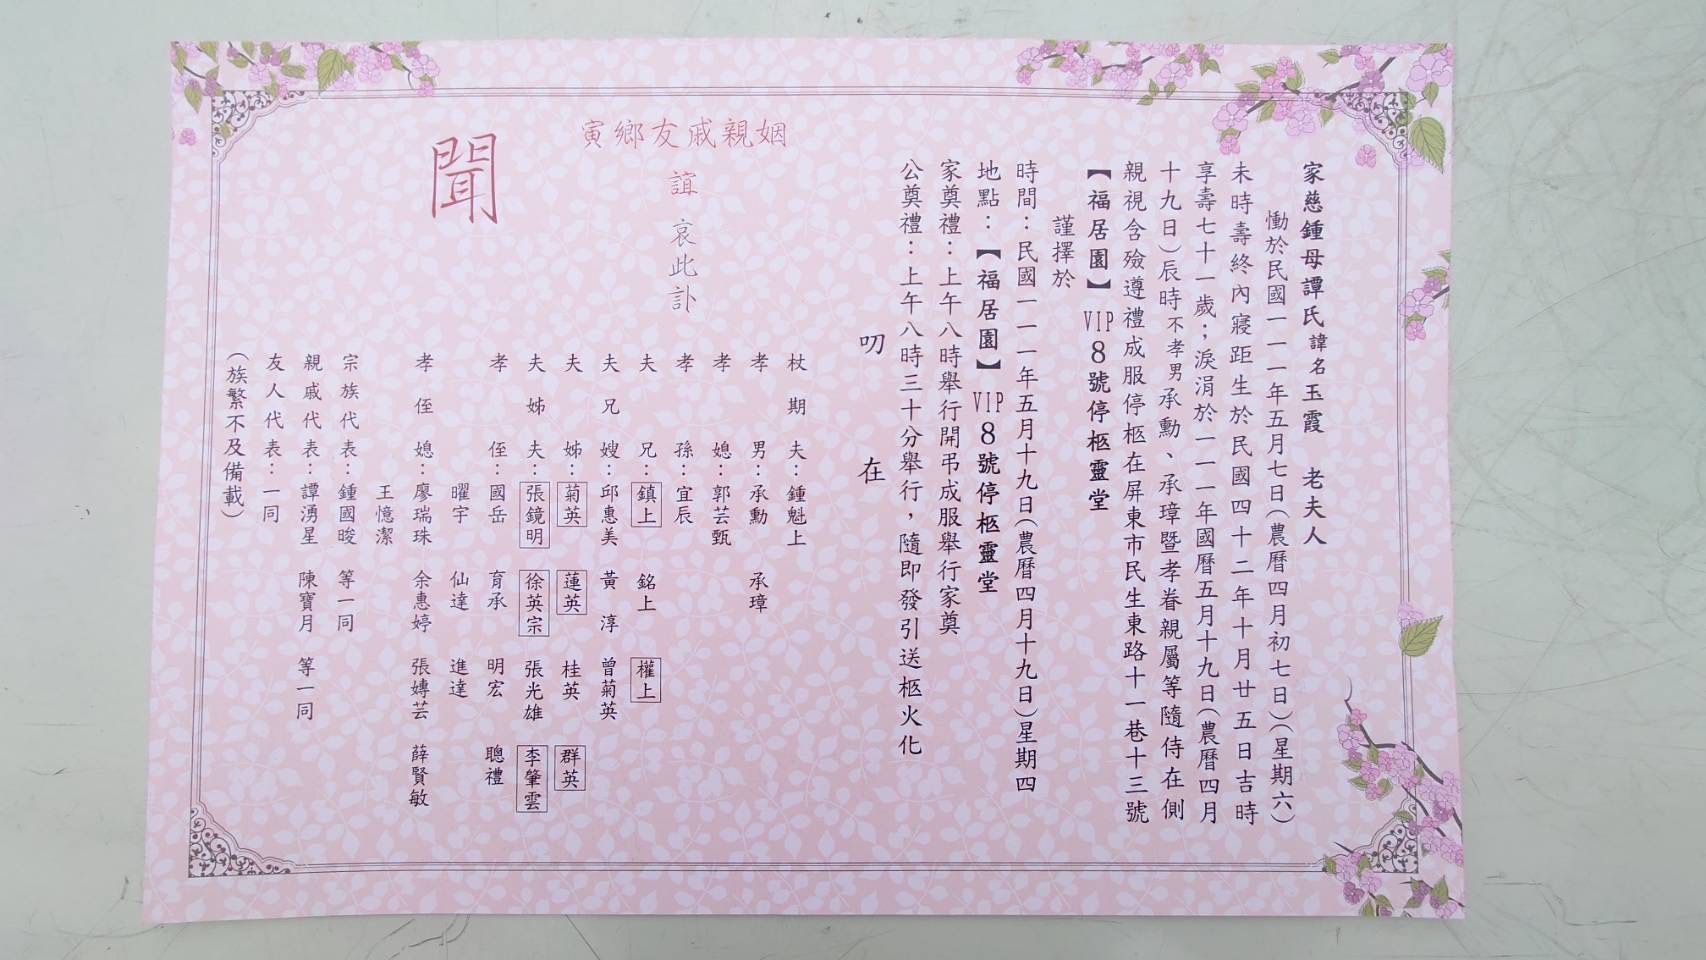 家慈鍾母譚氏諱名玉霞 老夫人
慟於民國一一一年五月七日(農曆四月初七日)(星期六)
未時壽終內寢距生於民國四十二年十月廿五日吉時
享壽七十一歲；淚涓於一一一年國曆五月十九日(農曆四月
十九日)辰時不孝男承勳、承璋暨孝眷親屬等隨侍在側
親視含殮遵禮成服停柩在屏東市民生東路十一巷十三號
【福居園】VIP8號停柩靈堂
謹擇於
時間：民國一一一年五月十九日(農曆四月十九日)星期四
地點：【福居園】VIP8號停柩靈堂
家奠禮：上午八時舉行開弔成服舉行家奠
公奠禮：上午八時三十分舉行，隨即發引送柩火化
叨 在
寅鄉友戚親姻
誼 哀此訃
聞
杖期夫：鍾魁上
孝男：承勳 承璋
孝媳：郭芸甄
孝孫：宜辰
夫兄：鎮上 銘上 權上
夫兄嫂：邱惠美 黃淳 曾菊英
夫姊：菊英 蓮英 桂英 群英
夫姊夫：張鏡明 徐英宗 張光雄 李肇雲
孝侄：國岳 育承 明宏 聰禮
曜宇 仙達 進達
孝侄媳：廖瑞珠 余惠婷 張嫥芸 薛賢敏
王憶潔
宗族代表：鍾國晙 等一同
親戚代表：譚湧星 陳寶月 等一同
友人代表：一同
(族繁不及備載)